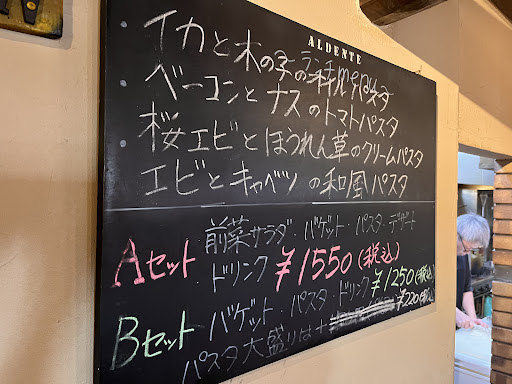 ALDENTE
・イカと木の子の
・ベーコンとナスのトマトパスタ
・桜エビとほうれん草のクリームパスタ
・エビとキャベツの和風パスタ
Aセット 前菜サラダ・バゲット・パスタ・デザート
ドリンク ¥1550(税込)
Bセット バゲット・パスタ・ドリンク ¥1250(税込)
パスタ大盛りは+ ¥220(税込)